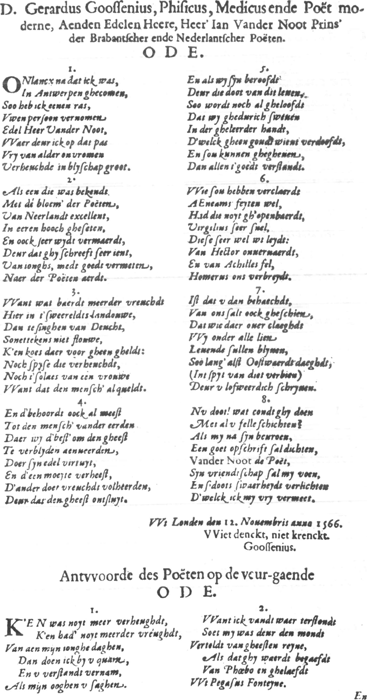 D. Gerardus Goossenius, Phisicus, Medicus ende Poët mo-
derne, Aenden Edelen Heere, Heer Ian Vander Noot Prins
der Brabantscher ende Nederlantscher Poëten.
O D E.
1.
ONlancx na dat ick was,
In Antwerpen ghecomen,
Soo heb ick eenen ras,
Vwen persoon vernomen
Edel Heer Vander Noot,
VVaer deur ick op dat pas
Vry van alder onvromen
Verheuchde in blyschap groot.
2.
Als een die was bekendt
Met de bloem' der Poëten,
Van Neerlandt excellent,
In eeren hooch gheseten,
En oock seer wydt vermaerdt,
Deur dat ghy schreeft seer ient,
Van ionghs, medt goedt vermeten,
Naer der Poëten aerdt.
3.
VVant wat baerdt meerder vreuchdt
Hier in s'sweereldts landouwe,
Dan te singhen van Deucht,
Sonettekens niet flouwe,
K'en koes daer voor gheen gheldt:
Noch spyse die verheuchdt,
Noch t'solaes van een vrouwe
VVant dat den mensch' al queldt.
4.
En d'behoordt oock al meest
Tot den mensch' vander eerden
Daer wy d'best' om den gheest
Te verblyden aenveerden,
Door syn edel virtuyt,
En d'een moeyte verheest,
D'ander doet vreuchdt volheerden,
Deur dat den gheest ontsluyt.
5.
En als wy syn berooft
Deur die doot van dit leven,
Soo wordt noch al ghelooft
Dat wy ghedurich sweven
In der gheleerder handt,
D'welck gheen goudt wient verdooft,
En sou kunnen ghegheven,
Dan allen i'goedt verstandt.
6.
VVie sou hebben verclaerdt
AEneams feyten wel,
Had die noyt gh'openbaerdt,
Virgilius seer snel,
Diese seer wel wt leydt:
Van Hector onvervaerdt,
En van Achilles fel,
Homerus ont verbreydt.
7.
Ist dat v dan behaechdt,
Van ons salt oock gheschien,
Dat wie daer over claeghdt
VVy onder alle lien
Levende sullen blyven,
Soo lang' alst Oostwaerdt daeghdt,
(Int spyt van diet verbien)
Deur v lofweerdich schryven.
8.
Nv doot! wat condt ghy doen
Met al v felle schichten?
Als my na syn bevroen,
Een goet opschrift sal dichten,
Vander Noot de Poët,
Syn vriendtschap sal my voen,
En s'doots swaerheydt verlichten
D'welck ick my vry vermeet.
VVt Londen den 12. Novembris anno 1566.
VViet denckt, niet krenckt.
Goossenius.
Antvvoorde des Poëten op de veur-gaende
O D E.
1.
K'EN was noyt meer verheughdt,
K'en had' noyt meerder vreughdt,
Van aen mijn ionghe daghen,
Dan doen ick by v quam,
En v verstandt vernam,
Als mijn ooghen v saghen.
2.
VVant ick vandt waer terstondt
Soet my was deur den mondt
Verteldt van gheesten reyne,
Als dat ghy waerdt begaefdt
Van Phœbo en ghelaefdt
VVt Pegasus Fonteyne.
En